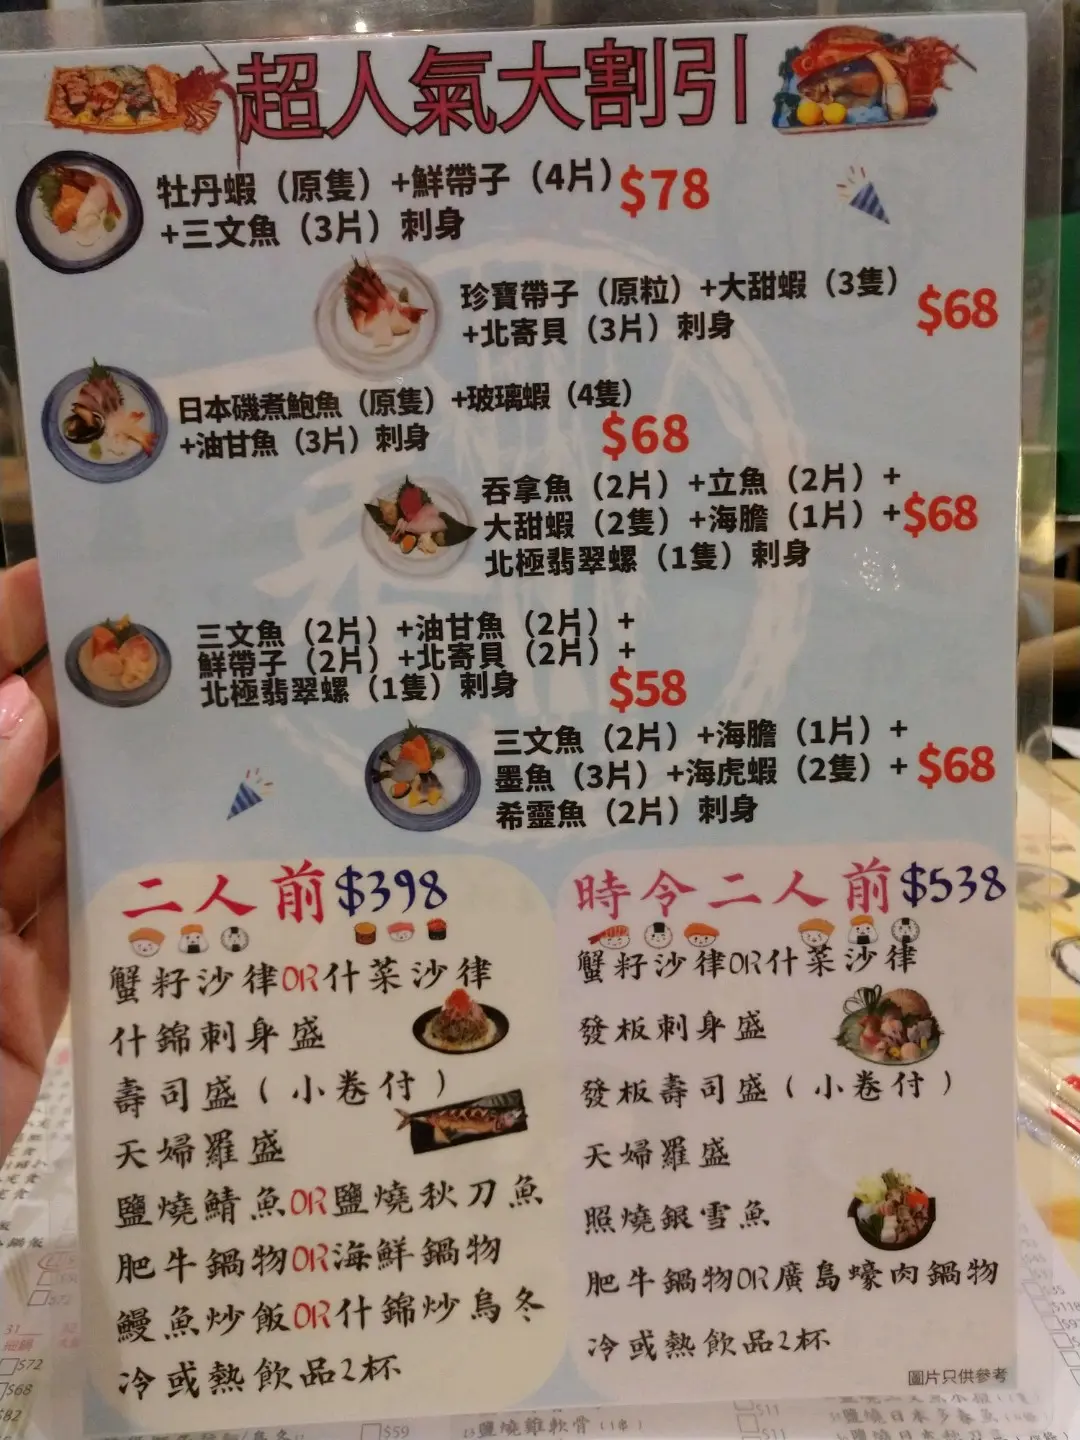 超人氣大割引
牡丹蝦（原隻）+鮮帶子（4片）$78
+三文魚（3片）刺身
珍寶帶子（原粒）+大甜蝦（3隻）
+北寄貝（3片）刺身
$68
日本磯煮鮑魚（原隻）+玻璃蝦（4隻）
+油甘魚（3片）刺身
$68
吞拿魚（2片）+立魚（2片）+
大甜蝦（2隻）+海膽（1片）+$68
北極翡翠螺（1隻）刺身
三文魚（2片）+油甘魚（2片）+
鮮帶子（2片）+北寄貝（2片）+
北極翡翠螺（1隻）刺身
$58
三文魚（2片）+海膽（1片）+
墨魚（3片）+海虎蝦（2隻）+$68
希靈魚（2片）刺身
二人前$398
蟹籽沙律OR什菜沙律
什錦刺身盛
壽司盛(小卷付)
天婦羅盛
鹽燒鯖魚OR鹽燒秋刀魚
肥牛鍋物OR海鮮鍋物
鰻魚炒飯OR什錦炒烏冬
冷或熱飲品2杯
時令二人前$538
蟹籽沙律OR什菜沙律
發板刺身盛
發板壽司盛(小卷付)
天婦羅盛
照燒銀雪魚
肥牛鍋物OR廣島蠔肉鍋物
冷或熱飲品2杯
圖片只供參考
$72
$68
$59
鹽燒雞軟骨
$11
$11
鹽燒日本多春魚